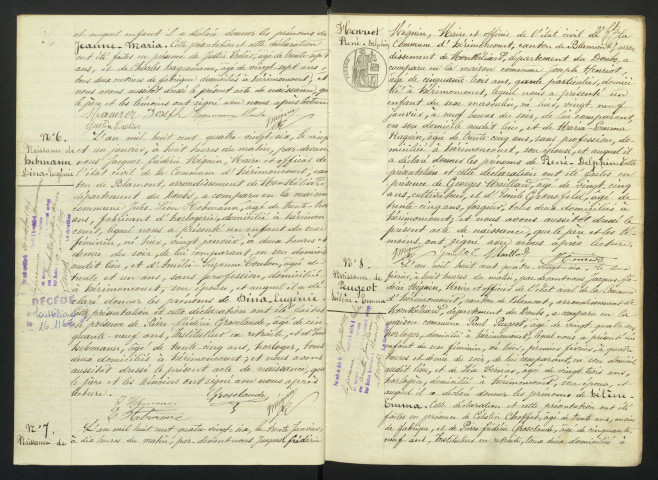 et auquel enfant il a déclaré donner les prénoms de
Jeanne-Maria. Cette présentation et cette déclaration
ont été faites en présence de Justin âgé de trente sept
ans, et de Charles âgé de vingt sept ans
tous deux de fabrique domiciliés à Hérimoncourt; et
nous avons aussitôt dressé le présent acte de naissance, que
le père et les témoins ont signé avec nous après lecture.
Joseph
N° 6.
Naissance de
Hebmann
Dina-Eugénie
L'an mil huit cent quatre vingt six, le vingt
et un janvier, à huit heures du matin, par devant
nous Jacques Frédéric Méquin, Maire et officier de
l'état civil de la Commune d'Hérimoncourt, can-
ton de Blamont, arrondissement de Montbéliard,
département du Doubs, a comparu en la maison
commune Léon Hebmann, âgé de trente
ans, fabricant d'horlogerie, domicilié à Hérimon-
court, lequel nous a présenté un enfant du sexe
féminin, né hier, vingt janvier, à deux heures et
demie du soir, de lui comparant, en son domicile
audit lieu, et de Suzanne âgée de
trente et un ans, sans profession, domiciliée
à Hérimoncourt, son épouse, et auquel il a dé-
claré donner les prénoms de Dina-Eugénie.
Cette présentation et cette déclaration ont été faites
en présence de Pierre Frédéric Grosclaude, âgé de cin-
quante-neuf ans, Instituteur en retraite, et de
Hebmann, âgé de trente cinq ans, horloger, tous
deux domiciliés à Hérimoncourt; et nous avons
aussitôt dressé le présent acte de naissance, que
le père et les témoins ont signé avec nous après
lecture.
Grosclaude
DÉCÉDÉ
N° 7.
Naissance de
L'an mil huit cent quatre vingt six, le trente janvier,
à dix heures du matin, par devant nous Jacques Frédéric
Henriot
René-Delphin
Méquin, Maire et officier de l'état civil de la
Commune d'Hérimoncourt, canton de Blamont, arron-
dissement de Montbéliard, département du Doubs, a
comparu en la maison commune Joseph Henriot
âgé de cinquante trois ans, domicilié
à Hérimoncourt, lequel nous a présenté un
enfant du sexe masculin, né hier, vingt neuf
janvier, à neuf heures du soir, de lui comparant,
en son domicile audit lieu, et de Maria-Emma
âgée de trente cinq ans, sans profession, do-
miciliée à Hérimoncourt, son épouse, et auquel il
a déclaré donner les prénoms de René-Delphin. Cette
présentation et cette déclaration ont été faites en
présence de Georges âgé de vingt cinq
ans, cultivateur, et d'Émile âgé de
trente cinq ans, tous deux domiciliés à
Hérimoncourt; et nous avons aussitôt dressé le
présent acte de naissance, que le père et les té-
moins ont signé avec nous après lecture.
N° 8.
Naissance de
Peugeot
Hélène-Emma
L'an mil huit cent quatre vingt six, le deux
février, à huit heures du matin, par devant nous Jacques Fré-
déric Méquin, Maire et officier de l'état civil de la Commune
d'Hérimoncourt, canton de Blamont, arrondissement de
Montbéliard, département du Doubs, a comparu en la
maison commune Paul Peugeot, âgé de vingt quatre ans,
horloger, domicilié à Hérimoncourt, lequel nous a présenté un
enfant du sexe féminin, né hier, premier février, à quatre
heures et demie du soir, de lui comparant, en son domicile
audit lieu, et de âgée de vingt trois ans,
horlogère, domiciliée à Hérimoncourt, son épouse, et
auquel il a déclaré donner les prénoms de Hélène-
Emma. Cette déclaration et cette présentation ont été
faites en présence de Célestin âgé de trente ans,
de fabrique, et de Pierre Frédéric Grosclaude, âgé de cinquante
neuf ans, Instituteur en retraite, tous deux domiciliés à